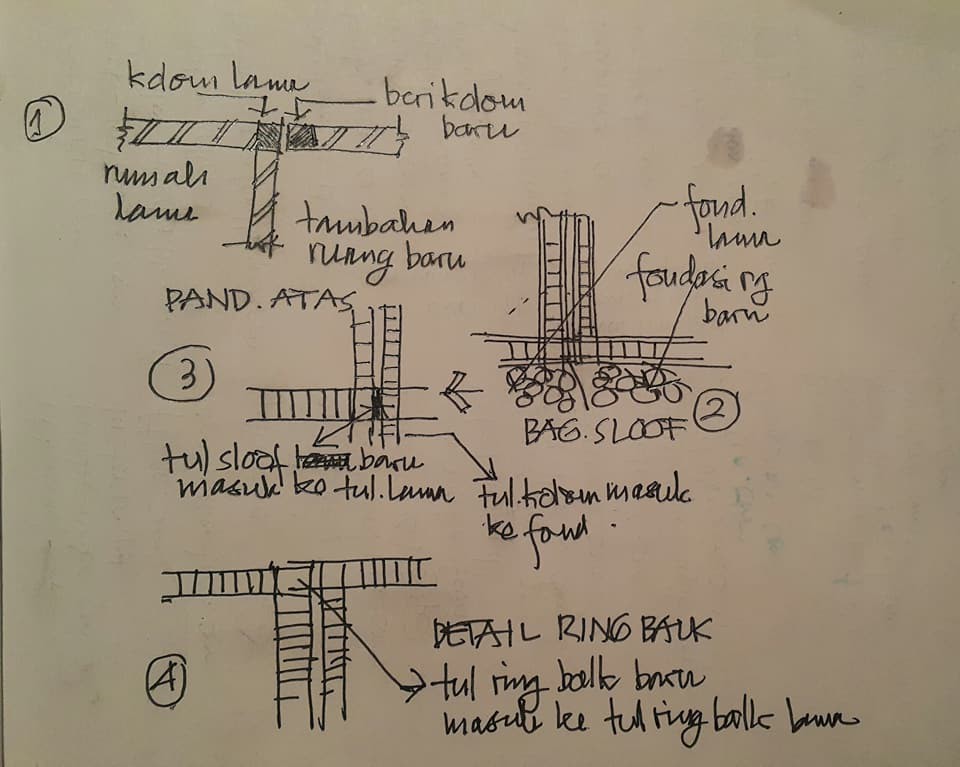 1
kolom lama
beri kolom
baru
rumah
lama
tambahan
ruang baru
PAND. ATAS
fond.
lama
fondasi rg
baru
3
2
BAG. SLOOF
tul sloof baru
masuk ke tul. lama
tul. kolom masuk
ke fond.
4
DETAIL RING BALK
tul ring balk baru
masuk ke tul ring balk lama